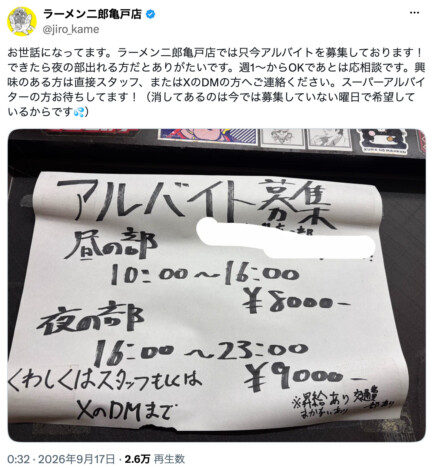 ラーメン二郎亀戸店
@jiro_kame
お世話になってます。ラーメン二郎亀戸店では只今アルバイトを募集しております！
できたら夜の部出れる方だとありがたいです。週1〜からOKであとは応相談です。興
味のある方は直接スタッフ、またはXのDMの方へご連絡ください。スーパーアルバイ
ターの方お待ちしてます！（消してあるのは今では募集していない曜日で希望して
いるからです💦）
アルバイト募集
昼の部
10:00〜16:00
¥8000-
夜の部
16:00〜23:00
¥9000-
くわしくはスタッフもしくは
XのDMまで
※昇給あり 交通費
まかないあり
0:32 · 2026年9月17日 · 2.6万 再生数